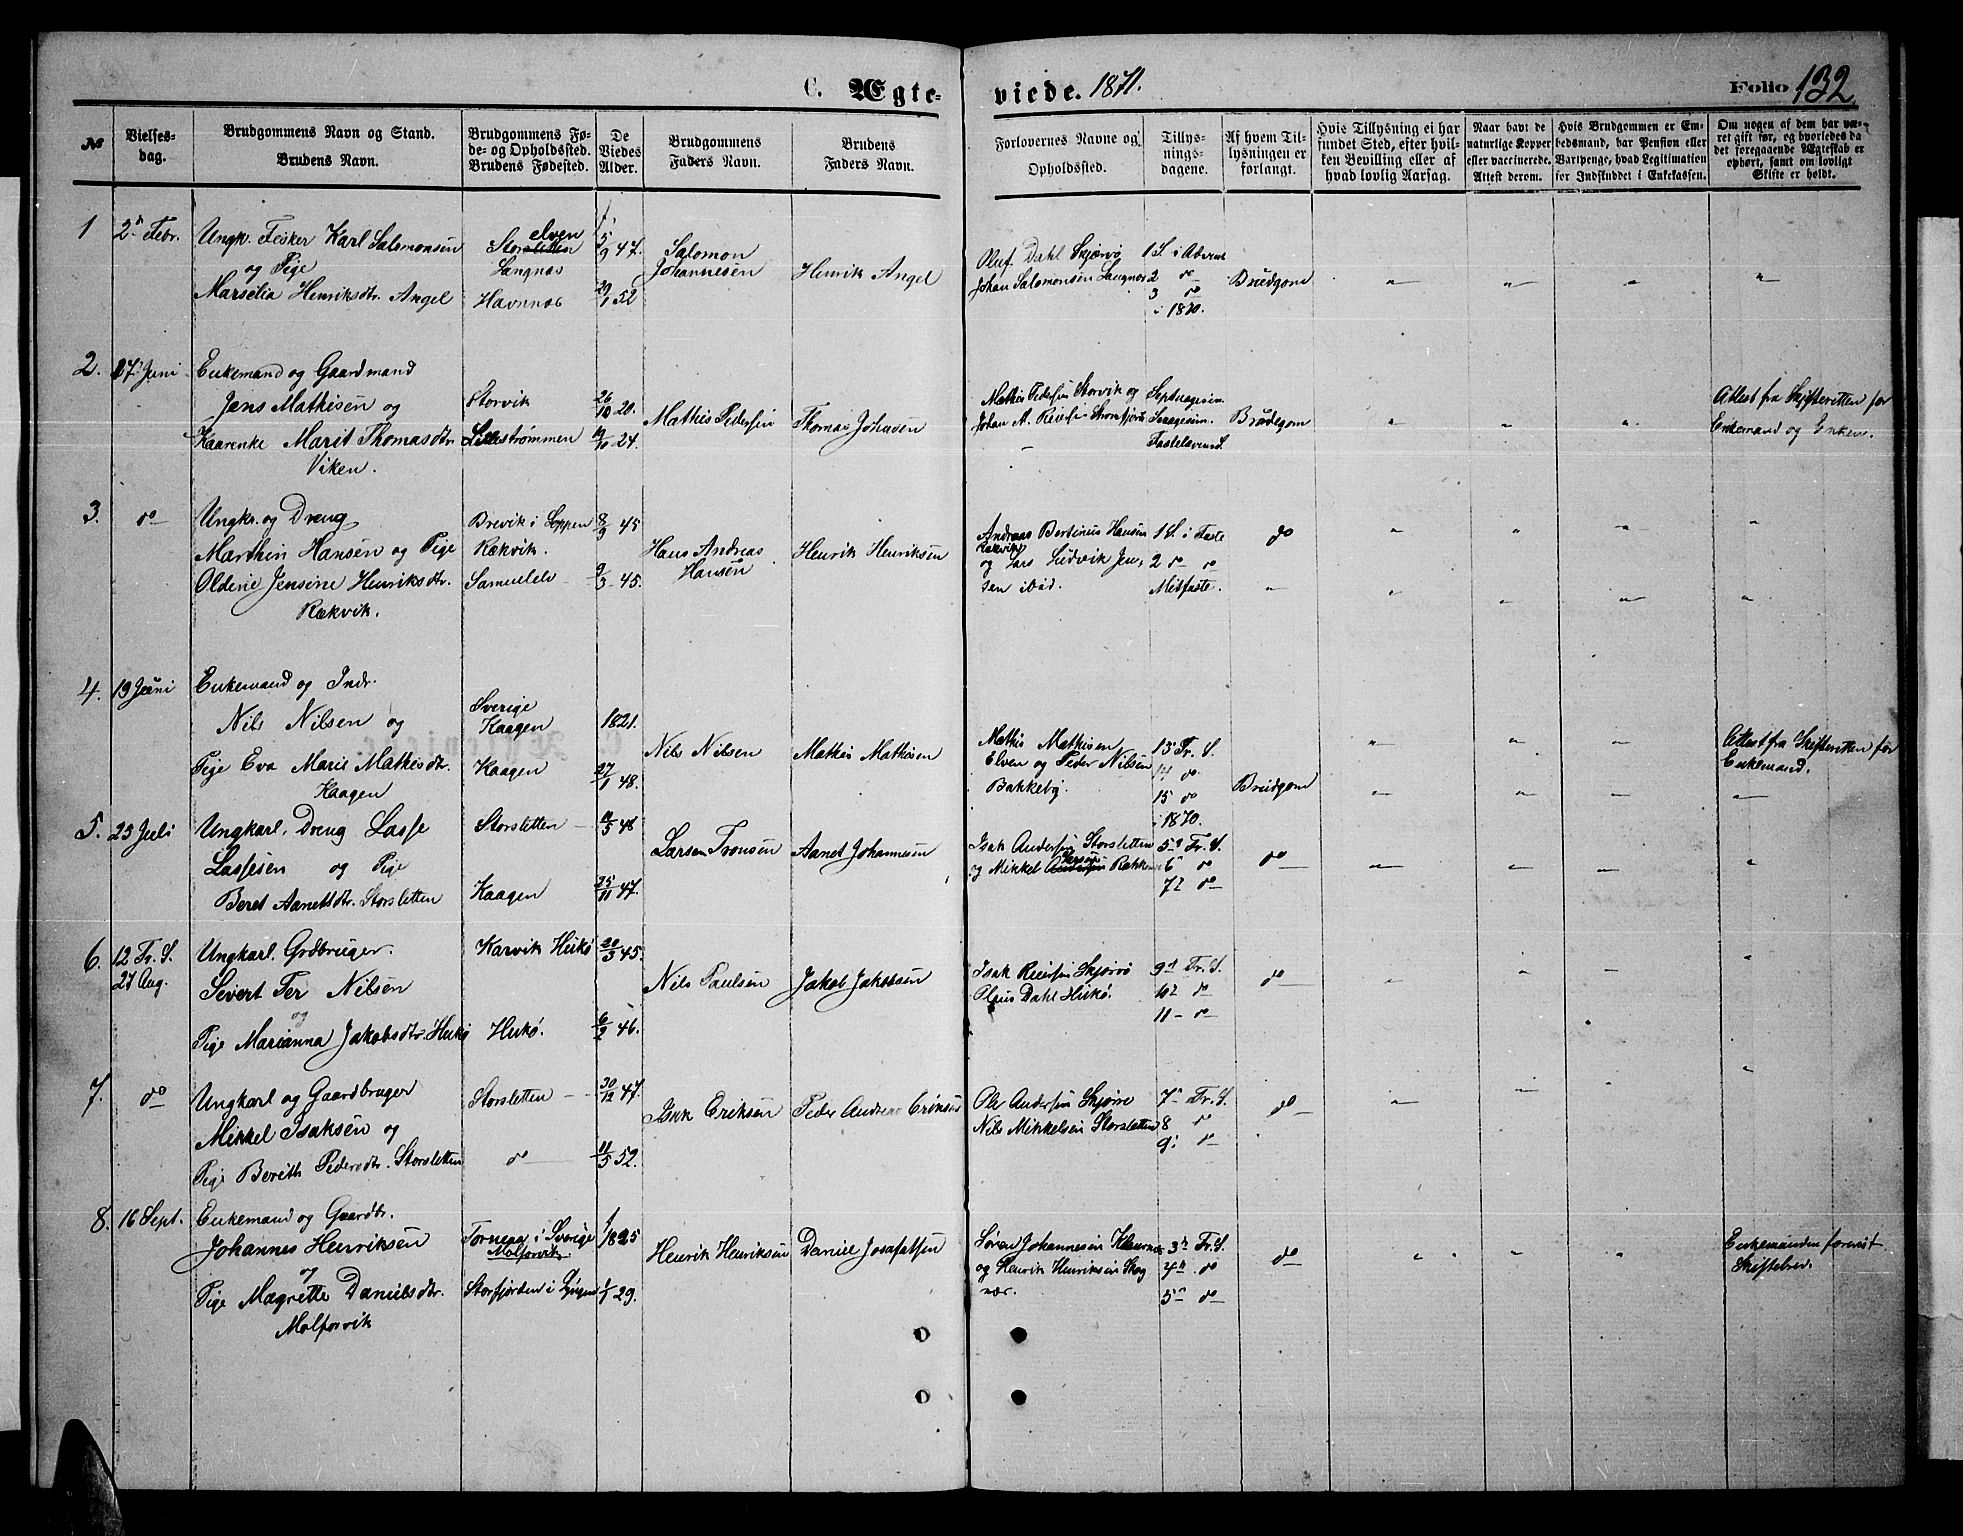 C. Ægte-
viede. 1871.
Folio 132.
№
Vielses-
dag.
Brudgommens Navn og Stand.
Brudens Navn.
Brudgommens Fø-
de- og Opholdssted.
Brudens Fødested.
De
Viedes
Alder.
Brudgommens
Faders Navn.
Brudens
Faders Navn.
Forlovernes Navne og
Opholdssted.
Tillys-
nings-
dagene.
Af hvem Til-
lysningen er
forlangt.
Hvis Tillysning ei har
fundet Sted, efter hvil-
ken Bevilling eller af
hvad lovlig Aarsag.
Naar havt de
naturlige Kopper
eller vaccinerede.
Attest derom.
Hvis Brudgommen er Em-
bedsmand, har Pension eller
Vartpenge, hvad Legitimation
for Indskuddet i Enkekassen.
Om nogen af dem har væ-
ret gift før, og hvorledes da
det foregaaende Ægteskab er
ophørt, samt om lovligt
Skifte er holdt.
1 2n Febr. Ungk. Fisker Karl Salomonsen
og Pige
Marselia Henriksdtr. Angel
elven
Storsletten
Langnes
Havnnæs
5/9 47.
29/1 52
Salomon
Johannesen
Henrik Angel
Oluf Dahl Skjærvø
Johan Salomonsen Langnes
1 S. i Advent
2 do
3 do
i 1870.
Brudgom
2. 17 Juni Enkemand og Gaardmand
Jens Mathisen og
Kaarenke Marit Thomasdtr.
Viken.
Storvik
Lillestrømmen
26/10 20.
19/10 24.
Mathis Pedersen
Thomas Johnsen
Mathis Pedersen Storvik og
Johan A. Reiersen Strømfjord
Septuagesim.
Sexagesim.
Fastelavens S.
Brudegom
Attest fra Skifteretten for
Enkemand og Enken.
3. do Ungkr. og Dreng
Marthin Hansen og Pige
Oldine Jensine Henriksdtr.
Rækvik.
Brevik i Loppen
Rækvik.
Samuelelv
8/9 45
9/3 45.
Hans Andreas
Hansen
Henrik Henriksen
Andreas Bertinius Hansen
Rækvik
og Lars Ludvik Jen-
sen ibid.
1 S. i Faste
2 do do
Mitfaste.
do
4. 19 Juni Enkemand og Indr.
Nils Nilsen og
Pige Eva Marie Mathisdtr.
Kaagen
Sverige
Kaagen
Kaagen
1821.
27/1 48.
Nils Nilsen
Mathis Mathisen
Mathis Mathisen
Elven og Peder Nilsen
Bakkeby.
13 Tr. S.
14 do
15 do
i 1870.
Brudgom
Attest fra Skifteretten for
Enkemand.
5. 25 Juli Ungkarl. Dreng Lasse
Lassesen og Pige
Beret Aanetdtr. Storsletten
Storsletten
Kaagen
11/5 48
25/11 47.
Larsen Tronsen
Aanet Johannesen
Isak Andersen Storsletten
og Mikkel Andersen
5 Tr. S.
6 do
7 do
do
6. 12 Tr. S.
27 Aug.
Ungkarl. Grdbruger.
Sivert Per Nilsen
og
Pige Marianna Jakobsdtr. Hukø
Karvik Hukø
Hukø.
20/3 45.
6/2 46.
Nils Paulsen
Jakob Jakobsen
Isak Reiersen Skjærvø
Claus Dahl Hukø.
9 Tr. S.
10 do
11 do
do
7. do Ungkarl og Gaardbruger
Mikkel Isaksen og
Pige Berith Pedersdtr. Storsletten
Storsletten
do
30/12 47.
11/5 52.
Isak Eriksen
Peder Andreas Eriksen
Ole Andersen Skjærvø
Nils Mikkelsen Storsletten
7 Tr. S.
8 do
9 do
do
8. 16 Sept. Enkemand og Gaardbr.
Johannes Henriksen
og
Pige Magrette Danielsdtr.
Molforvik
Torneaa i Sverige
Molforvik
Storfjorden i Lyngen
1825
1/1 29.
Henrik Henriksen
Daniel Josafatsen
Søren Johannesen
og Henrik Henriksen Skog
nær.
3 Tr. S.
4 do
5 do
do
Enkemanden forevist
Skiftebrev.